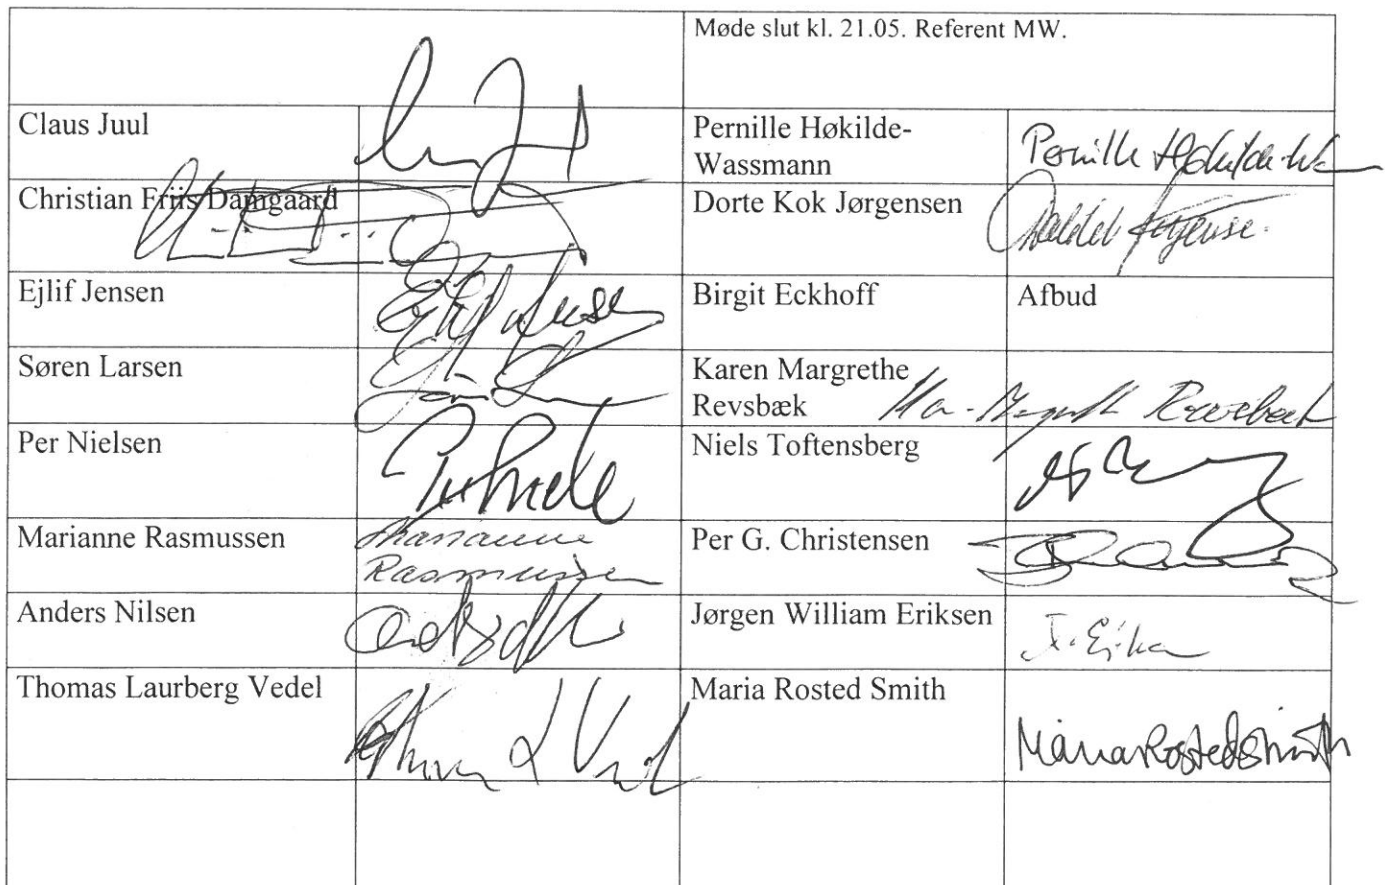 Møde slut kl. 21.05. Referent MW.
Claus Juul
Pernille Høkilde-
Wassmann
Pernille Høkilde-Wa
Christian Friis Damgaard
Dorte Kok Jørgensen
Ejlif Jensen
Ejlif Jensen
Birgit Eckhoff
Afbud
Søren Larsen
Karen Margrethe
Revsbæk
Per Nielsen
Niels Toftensberg
Marianne Rasmussen
Marianne
Rasmussen
Per G. Christensen
Anders Nilsen
Jørgen William Eriksen
Thomas Laurberg Vedel
Maria Rosted Smith
Maria Rosted Smith